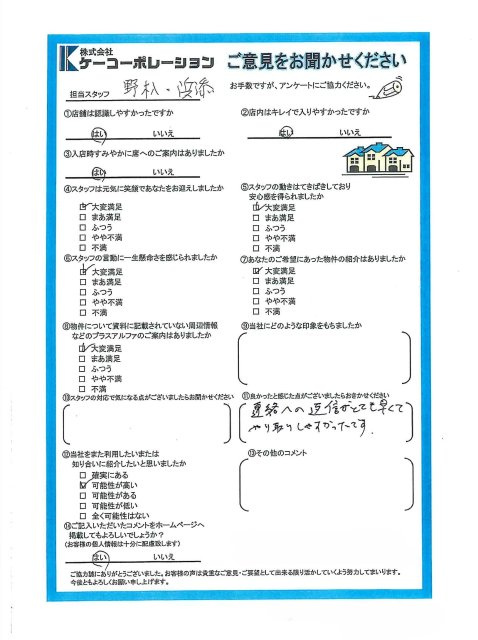 株式会社
ケーコーポレーション
ご意見をお聞かせください
担当スタッフ 野村・
お手数ですが、アンケートにご協力ください。
①店舗は認識しやすかったですか
はい いいえ
②店内はキレイで入りやすかったですか
はい いいえ
③入店時すみやかに席へのご案内はありましたか
はい いいえ
④スタッフは元気に笑顔であなたをお迎えしましたか
大変満足
まあ満足
ふつう
やや不満
不満
⑤スタッフの動きはてきぱきしており
安心感を得られましたか
大変満足
まあ満足
ふつう
やや不満
不満
⑥スタッフの言動に一生懸命さを感じられましたか
大変満足
まあ満足
ふつう
やや不満
不満
⑦あなたのご希望にあった物件の紹介はありましたか
大変満足
まあ満足
ふつう
やや不満
不満
⑧物件について資料に記載されていない周辺情報
などのプラスアルファのご案内はありましたか
大変満足
まあ満足
ふつう
やや不満
不満
⑨当社にどのような印象をもちましたか
⑩スタッフの対応で気になる点がございましたらお聞かせください
⑪良かったと感じた点がございましたらおきかせください
連絡への返信がとても早くて
やり取りしやすかったです。
⑫当社をまた利用したいまたは
知り合いに紹介したいと思いましたか
確実にある
可能性が高い
可能性がある
可能性が低い
全く可能性はない
⑬その他のコメント
⑭ご記入いただいたコメントをホームページへ
掲載してもよろしいでしょうか？
(お客様の個人情報は十分に配慮致します)
はい いいえ
ご協力誠にありがとうございました。お客様の声は貴重なご意見・ご要望として出来る限り活かしていくよう努力してまいります。
今後ともよろしくお願い申し上げます。